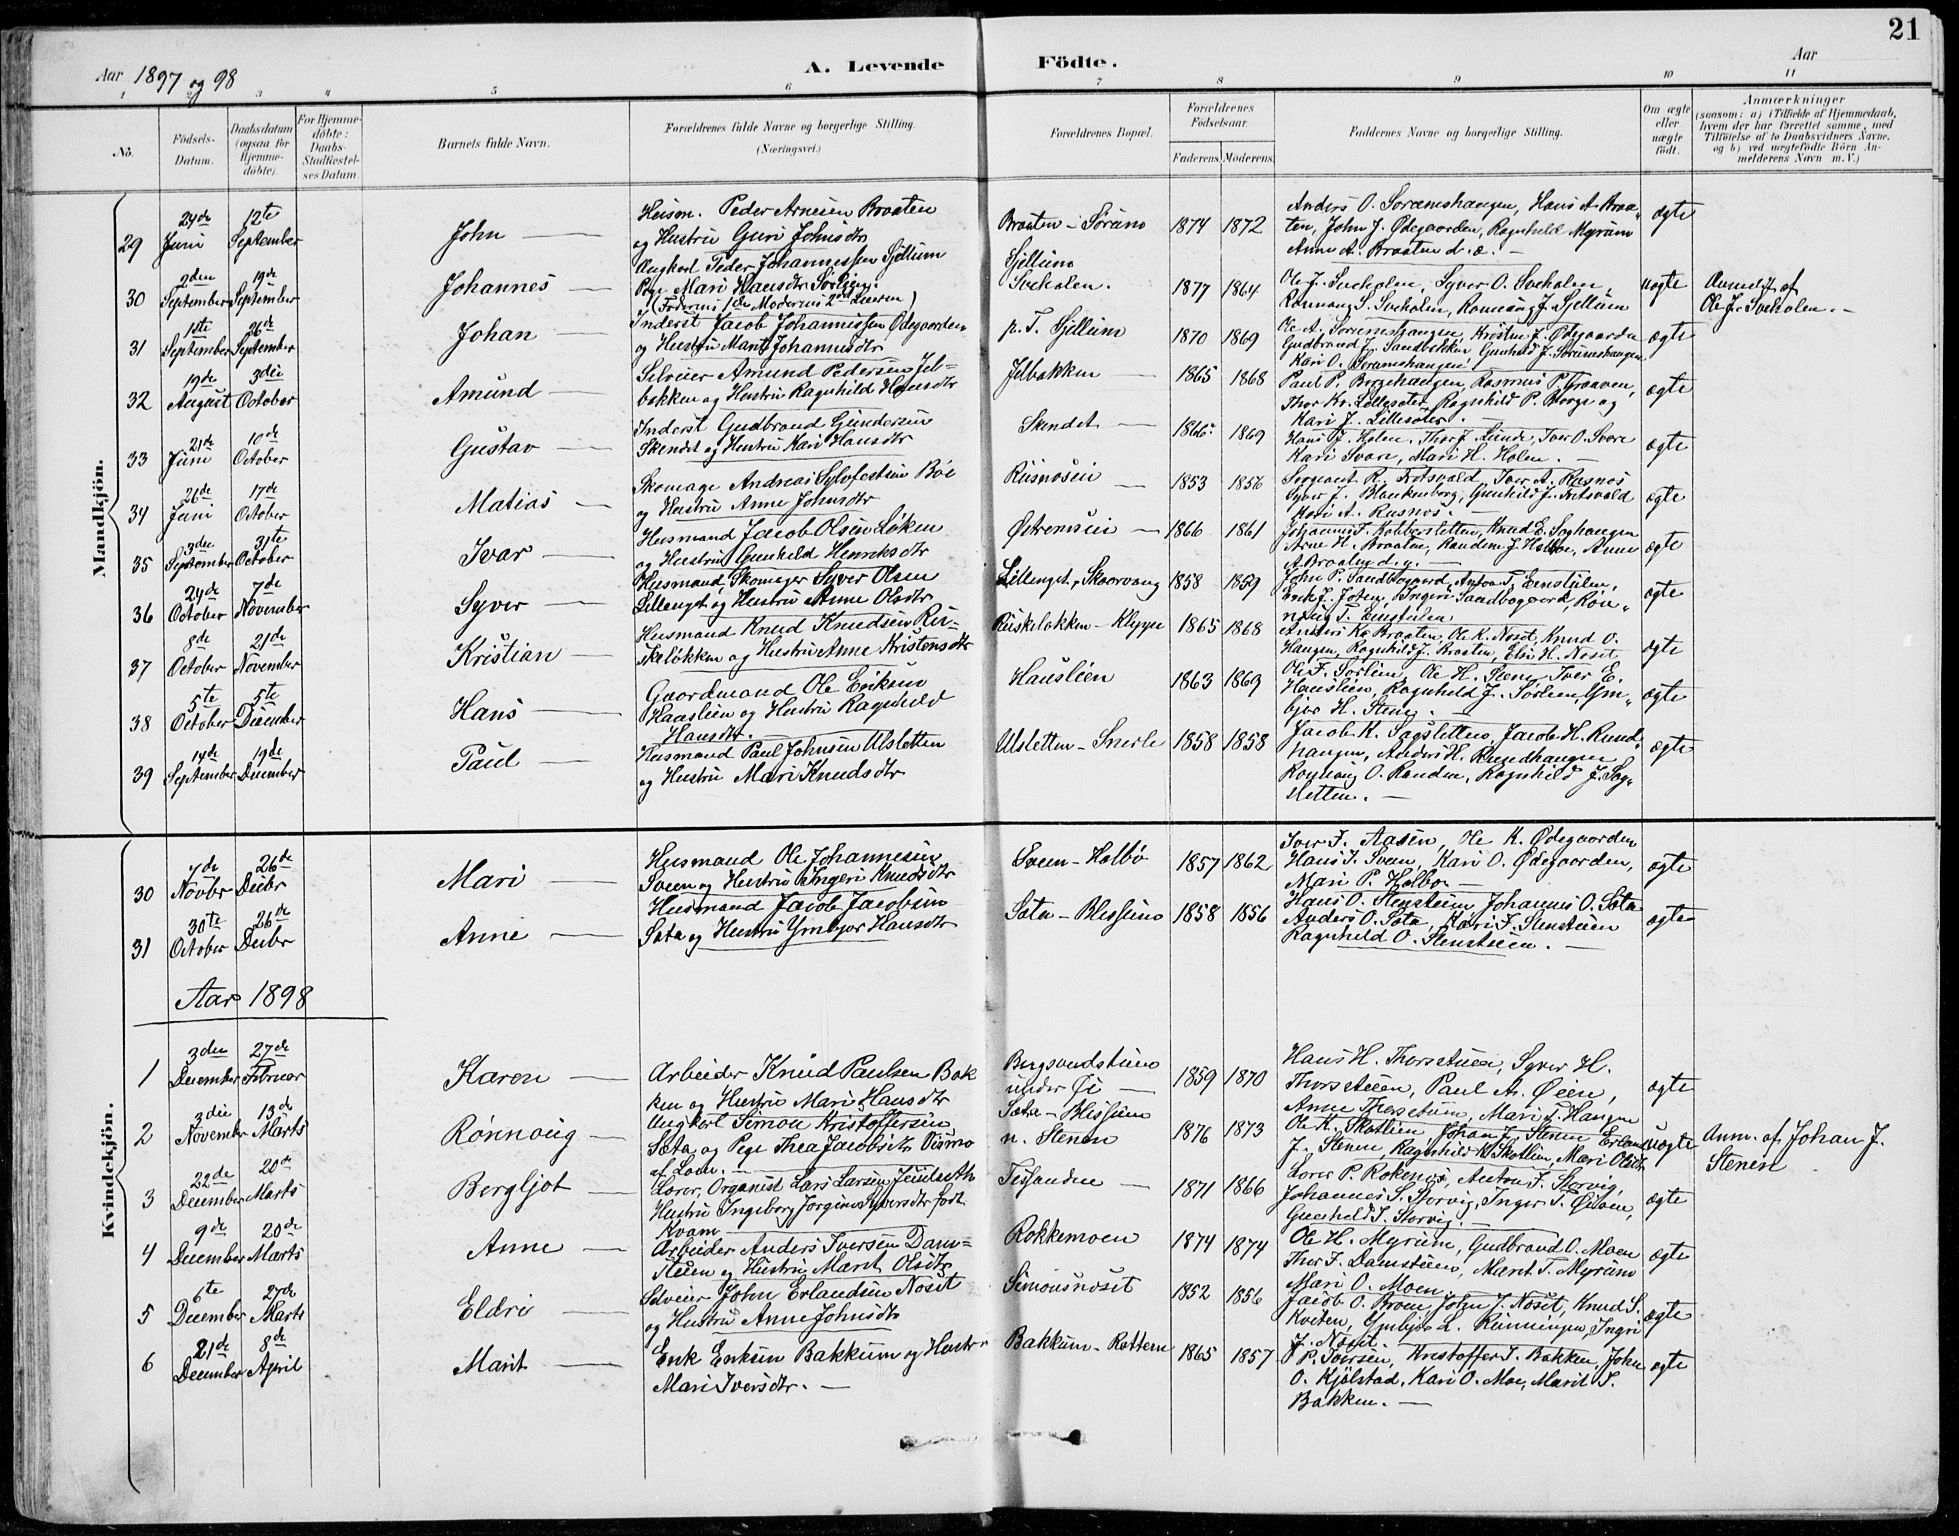 21
Aar 1897 og 98
A. Levende Födte.
Aar
1 3 4 5 6 7 8 9 10 11
No.
Födsels-Datum.
Daabsdatum (ogsaa for Hjemme-döbte).
For Hjemme-döbte: Daabs-Stadfæstel-ses Datum.
Barnets fulde Navn.
Forældrenes fulde Navne og borgerlige Stilling.
(Næringsvei.)
Forældrenes Bopæl.
Forældrenes Födselsaar.
Faderens. Moderens.
Faddernes Navne og borgerlige Stilling.
Om ægte eller uægte födt.
Anmærkninger
(saasom: a) i Tilfælde af Hjemmedaab, hvem der har forrettet samme, med Tilföielse af to Daabsvidners Navne, og b) ved uægtefödte Börn Anmelderens Navn m. V.)
Mandkjön.
29 24de Juni 12te September John — Husm. Peder Arnesen Braaten
og Hustru Guri Johnsdtr
Braaten - Sörum 1874 1872
Anders O. Soramshaugen, Hans A. Braa-
ten, John J. Ødegaarden, Ragnhild Myrum
Anne A. Braaten d. æ. — ægte
30 2den September 19de September Johannes — Ungkarl Peder Johannessen Sjellum
Pige Mari Hansdtr
(Faderens 1ste Moderens 2det Leierm.)
Sjellum
Sveholen. 1877 1864
Ole J. Sveholen, Syver O. Sveholen,
Rönnaug S. Sveholen, Rönnaug J. Sjellum uægte
Anmeldt af
Ole J. Sveholen. —
31 1ste September 26de September Johan — Inderst Jacob Johannessen Ødegaarden
og Hustru Marit Johannesdtr
p. T. Sjellum 1870 1869
Ole A. Soramshaugen, Kristen J. Ødegaarden
Gudbrand J. Sandbakken, Gunhild J. Soramshaugen
Kari O. Soramshaugen ægte
32 19de August 3die October Amund — Selveier Amund Pedersen Jel-
bakken og Hustru Ragnhild Hansdtr
Jelbakken — 1865 1868
Paul P. Borgehaugen, Rasmus P. Graaven,
Thor Kr. Lillesater, Ragnhild P. Borge og
Kari J. Lillesater. — ægte
33 21de Juni 10de October Gustav — Inderst Gudbrand Gundersen
Skendet og Hustru Kari Hansdtr
Skendet — 1866 1869
Hans J. Holen, Thor J. Lunde, Iver O. Svare
Kari Svare, Mari H. Holen. — ægte
34 26de Juni 17de October Matias — Skomager Andreas Sylvestsen Böe
og Hustru Anne Johnsdtr
Rusnosen — 1853 1856
Sergeant R. Fretsvold, Iver A. Rusnos
Syver J. Blankenborg, Gunhild J. Fretsvold
Kari A. Rusnos. — ægte
35 3die September 31te October Ivar — Husmand Jacob Olsen Löken
og Hustru Gunhild Henriksdtr
Østremseie — 1866 1861
Johannes F. Kolbersletten, Knud E. Soghaugen
Arne H. Braaten, Randine J. Holboe, Anne
A. Braaten d. y. — ægte
36 24de October 7de November Syver — Husmand, Skomager Syver Olsen
Lillenget og Hustru Anne Olsdtr
Lillenget, Skaarvang 1858 1859
John P. Sandbogaard, Anton T. Enestulen,
Erik J. Joten, Ingeri Sandbogaard, Rön-
naug T. Enestulen ægte
37 8de October 21de November Kristian — Husmand Knud Knudsen Rus-
keløkken og Hustru Anne Kristensdtr
Ruskeløkken - Kleppe 1865 1868
Anders Kr. Braaten, Ole K. Noset, Knud O.
Haugen, Ragnhild J. Braaten, Eli H. Noset ægte
38 5te October 5te December Hans — Gaardmand Ole Eriksen
Haaslien og Hustru Ragnhild
Hansdtr. —
Hauslien 1863 1869
Ole F. Sörlien, Ole H. Steng, Iver E.
Hauslien, Ragnhild J. Sörlien, Ym-
bjør H. Steng. — ægte
39 14de September 19de December Paul — Husmand Paul Johnsen Ulsletten
og Hustru Mari Knudsdtr
Ulsletten - Snerle 1858 1858
Jacob K. Sagsletten, Jacob H. Rund-
haugen, Anders H. Rundhaugen
Rönnaug O. Randen, Ragnhild J. Sag-
sletten. — ægte
Kvindekjön.
30 7de Novbr 26de Decbr Mari — Husmand Ole Johannesen
Sveen og Hustru Ingeri Knudsdtr
Sveen - Holbö 1857 1862
Iver F. Aasen, Ole K. Ødegaarden
Hans J. Sveen, Kari O. Ødegaarden,
Mari P. Holbo — ægte
31 30te October 26de Decbr Anne — Husmand Jacob Jacobsen
Sata og Hustru Ymbjør Hansdtr
Sata - Blessum 1858 1856
Hans O. Stensteien, Johannes O. Sata
Anders O. Sata, Mari J. Stensteien
Ragnhild O. Stensteien. — ægte
Aar 1898
1 3den December 27de Februar Karen — Arbeider Knud Paulsen Bak
ken og Hustru Mari Hansdtr
Bergsundstuen
under Øi — 1859 1870
Hans H. Thorsetuen, Syver H.
Thorstuen, Paul A. Øien,
Anne Thorsetuen, Mari J. Haugen ægte
2 3die November 13de Marts Rönnaug — Ungkarl Simon Kristoffersen
Sæta og Pige Thea Jacobsdtr
af Lom. —
Sæta - Blessum
n. Stenen 1876 1873
Ole K. Skotlien, Johan J. Stenen, Erland
J. Stenen, Ragnhild K. Skotlien, Mari Olsdtr uægte
Anm. af Johan J.
Stenen
3 22de December 20de Marts Bergljot — Lærer, Organist Lars Larsen Jemlseth
Hustru Ingeborg Jørgine Syversdtr født
Kvam
Tessanden — 1871 1866
Lærer P. Rokenes, Anton J. Storvig,
Johannes S. Storvig, Inger T. Øiloen,
Gunhild J. Storvig. — ægte
4 9de December 20de Marts Anne — Arbeider Anders Iversen Dam-
steien og Hustru Marit Olsdtr
Rokkemoen 1874 1874
Ole H. Myrum, Gudbrand O. Moen
Thor J. Damsteien, Marit T. Myrum
Mari O. Moen. ægte
5 6te December 27de Marts Eldri — Selveier John Erlandsen Noset
og Hustru Anne Johnsdtr
Simonsnoset 1852 1856
Jacob O. Broen, John J. Noset, Knud S.
Kviten, Ymbjør L. Rinningen, Ingri
J. Noset. ægte
6 21de December 8de April Marit — Erik Eriksen Bakkum og Hustru
Mari Iversdtr. —
Bakkum - Rottem 1865 1857
P. Iversen, Kristoffer I. Bakken, John
O. Kjølstad, Kari O. Moe, Marit I.
Bakken. — ægte